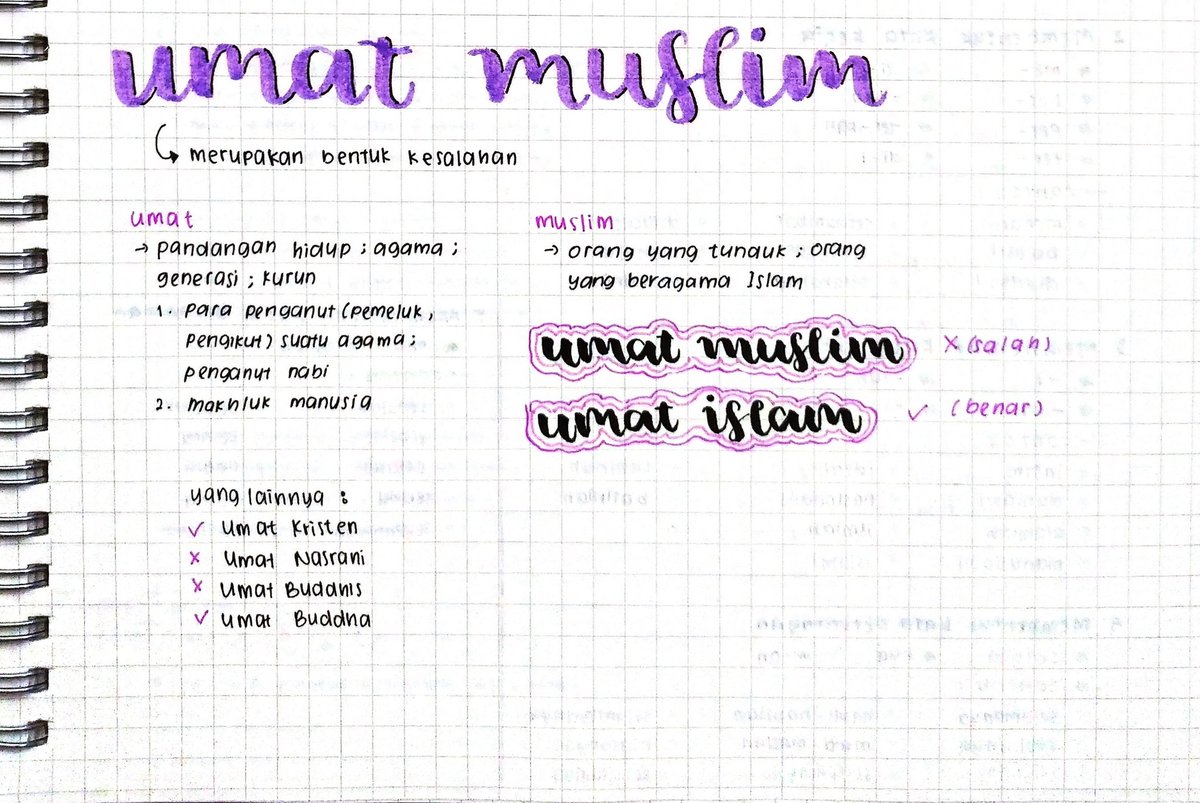 umat muslim
↳ merupakan bentuk kesalahan
umat
→ pandangan hidup ; agama ;
generasi ; kurun
1. para penganut (pemeluk,
pengikut) suatu agama ;
penganut nabi
2. makhluk manusia
muslim
→ orang yang tunduk ; orang
yang beragama Islam
umat muslim × (salah)
umat islam ✓ (benar)
yang lainnya :
✓ Umat Kristen
× Umat Nasrani
× Umat Buddhis
✓ Umat Buddha